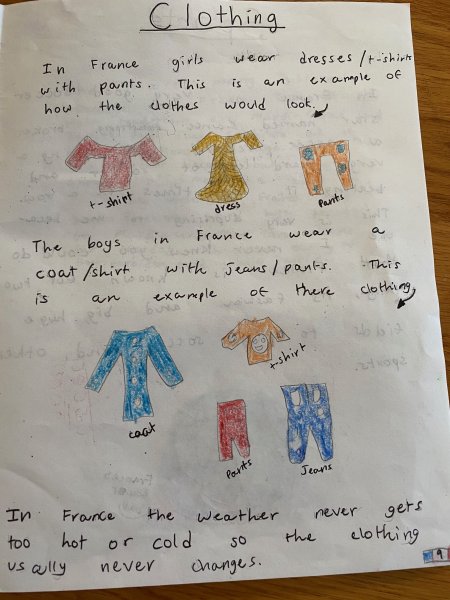 Clothing
In France girls wear dresses/t-shirts
with pants. This is an example of
how the clothes would look.
t-shirt
dress
Pants
The boys in France wear a
coat/shirt with jeans/pants. This
is an example of there clothing,
t-shirt
coat
Pants
Jeans
In France the weather never gets
too hot or cold so the clothing
usally never changes.
9